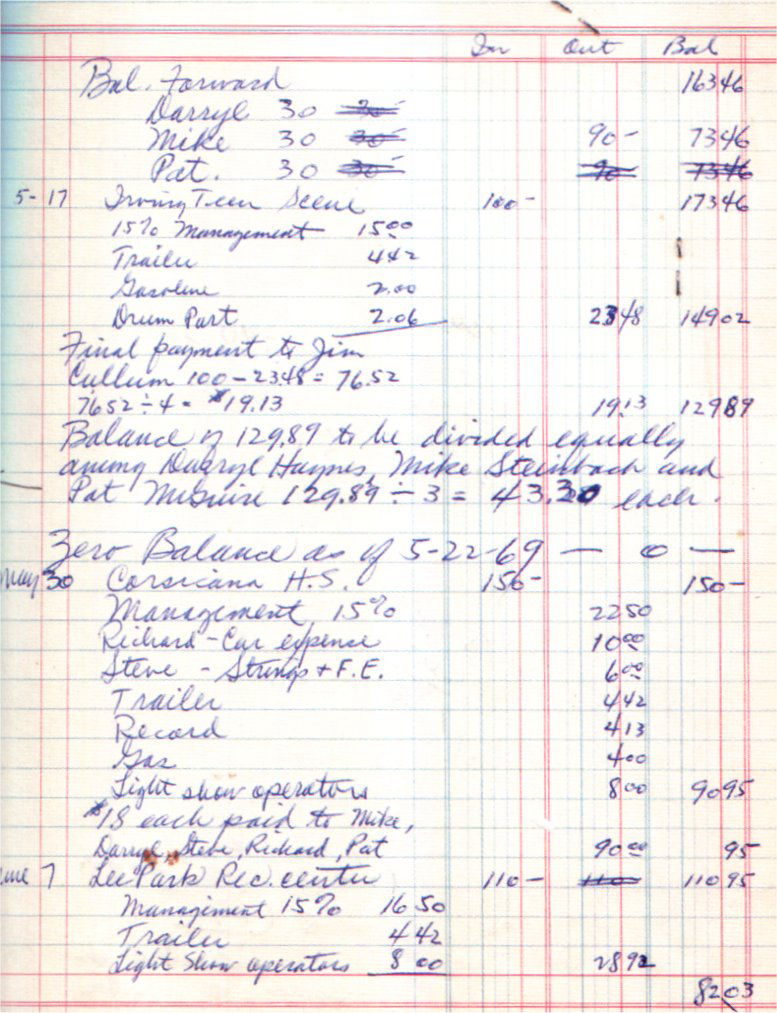 In Out Bal
Bal. Forward 163 46
Darryl 30 30-
Mike 30 30- 90- 73 46
Pat. 30 30- 90- 73 46
5-17 Irving Teen Scene 100- 173 46
15% Management 15.00
Trailer 4 42
Gasoline 2.00
Drum Part 2.06 23 48 149 02
Final payment to Jim
Cullum 100-23.48= 76.52
7652÷4= $19.13 19.13 129 89
Balance of 129.89 to be divided equally
among Darryl Haynes, Mike Steinbach and
Pat McGuire 129.89÷3= 43.30 each.
Zero Balance as of 5-22-69 — 0 —
May 30 Corsicana H.S. 150- 150-
Management 15% 22 50
Richard-Car expense 10 00
Steve - Strings + F.E. 6 00
Trailer 4 42
Record 4 13
Gas 4 00
Light show operators 8 00 90 95
$18 each paid to Mike,
Darryl, Steve, Richard, Pat 90 00 95
une 7 Lee Park Rec. center 110- 110- 110 95
Management 15% 16 50
Trailer 4 42
Light Show operators 8 00 28 92
82 03